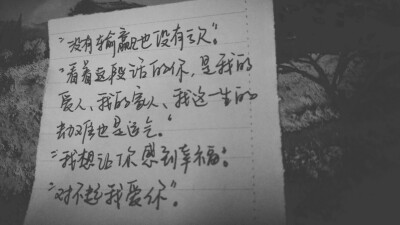 "没有输赢也没有欠"。
"看着这段话的你，是我的
爱人、我的家人、我这一生的
劫难也是运气。"
"我想让你感到幸福"。
"对不起我爱你"。